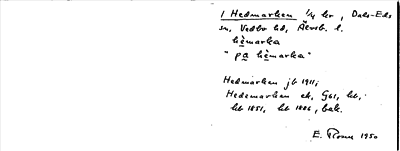 1 Hedmarken 1/4 hr, Dals-Eds
sn, Vedbo hd, Älvsb. l.
hèmarka
"pa hèmarka"
Hedmarken jb 1911;
Hedemarken ek, G61, hb,
hb 1851, hb 1886, bak.
E. 1950